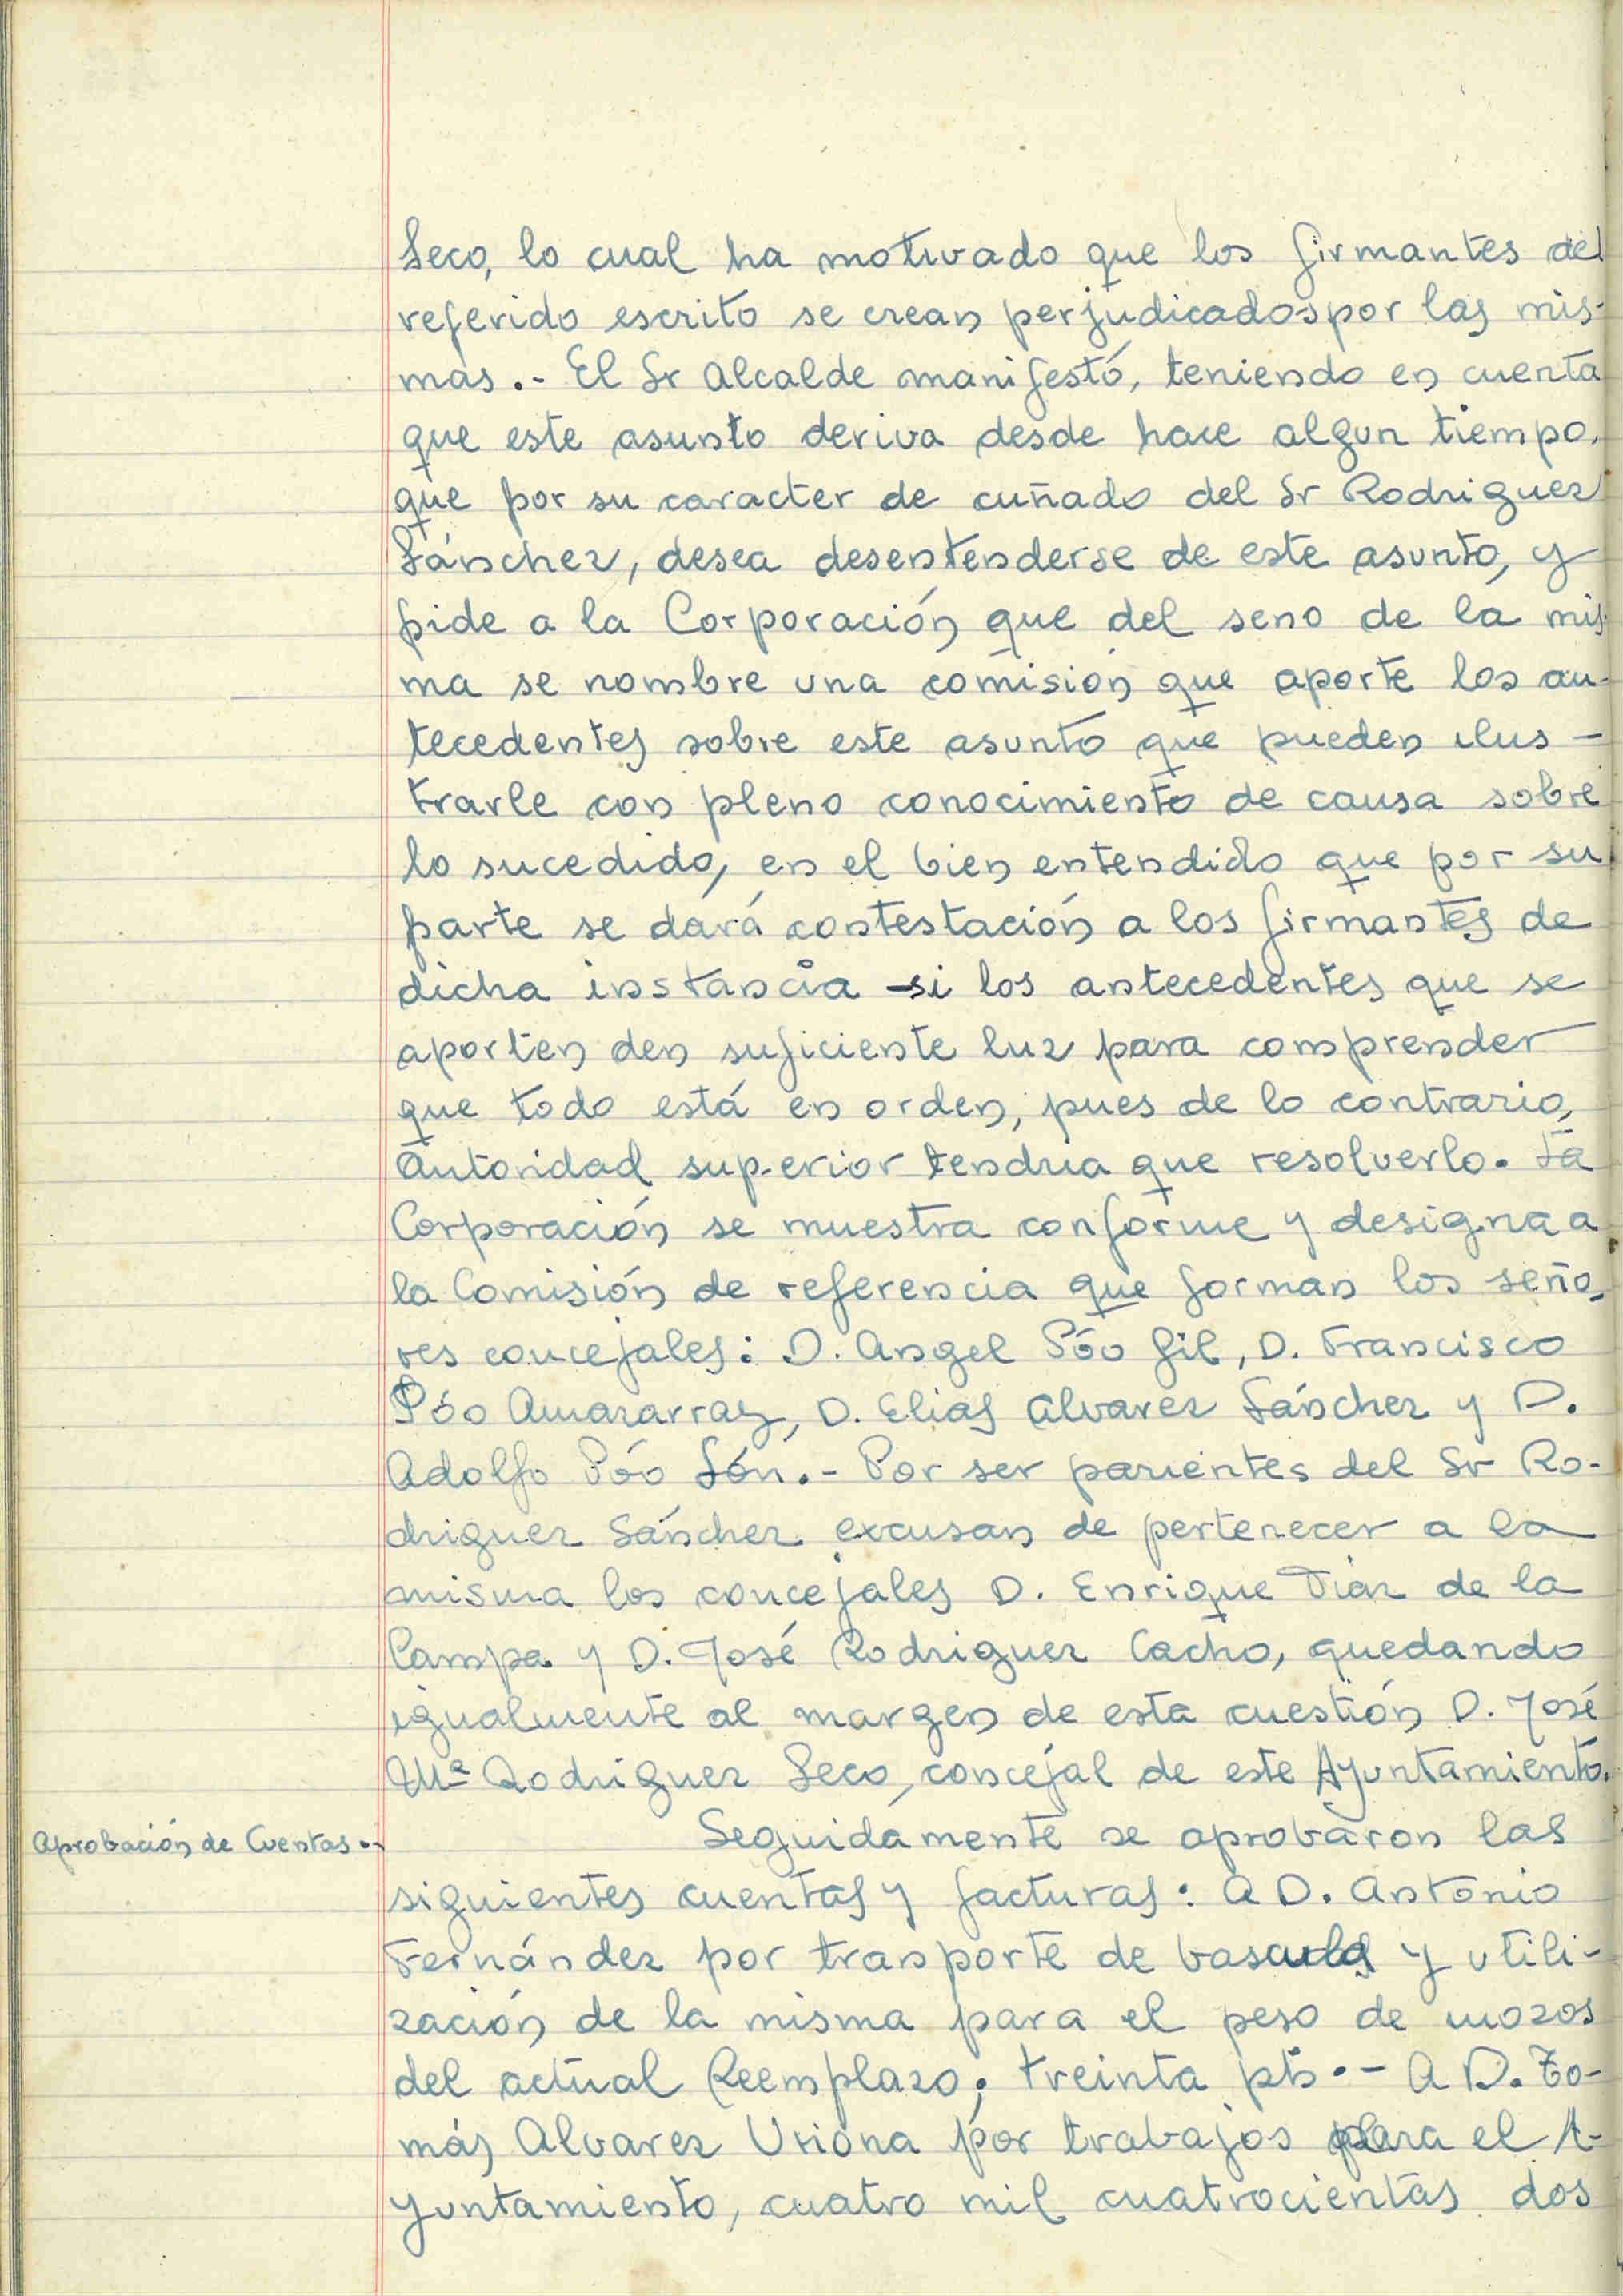 Seco, lo cual ha motivado que los firmantes del
referido escrito se crean perjudicados por las mis-
mas.- El Sr Alcalde manifestó, teniendo en cuenta
que este asunto deriva desde hace algun tiempo,
que por su caracter de cuñado del Sr Rodriguez
Sánchez, desea desentenderse de este asunto, y
pide a la Corporación que del seno de la mis-
ma se nombre una comisión que aporte los an-
tecedentes sobre este asunto que pueden ilus-
trarle con pleno conocimiento de causa sobre
lo sucedido, en el bien entendido que por su
parte se dará contestación a los firmantes de
dicha instancia si los antecedentes que se
aporten den suficiente luz para comprender
que todo está en orden, pues de lo contrario,
Autoridad superior tendria que resolverlo. La
Corporación se muestra conforme y designa a
la Comisión de referencia que forman los seño-
res concejales: D. Angel Póo Gil, D. Francisco
Póo Amazarray, D. Elias Alvarez Sánchez y D.
Adolfo Póo Són.- Por ser parientes del Sr Ro-
driguez Sánchez excusan de pertenecer a la
misma los concejales D. Enrique Diaz de la
Campa y D. José Rodriguez Cacho, quedando
igualmente al margen de esta cuestión D. José
Mª Rodriguez Seco, concejal de este Ayuntamiento.
Aprobación de Cuentas.-
Seguidamente se aprobaron las
siguientes cuentas y facturas: A D. Antonio
Fernández por transporte de bascula y utili-
zación de la misma para el peso de mozos
del actual Reemplazo; treinta pts.- A D. To-
más Alvarez Uriona por trabajos para el A-
yuntamiento, cuatro mil cuatrocientas dos